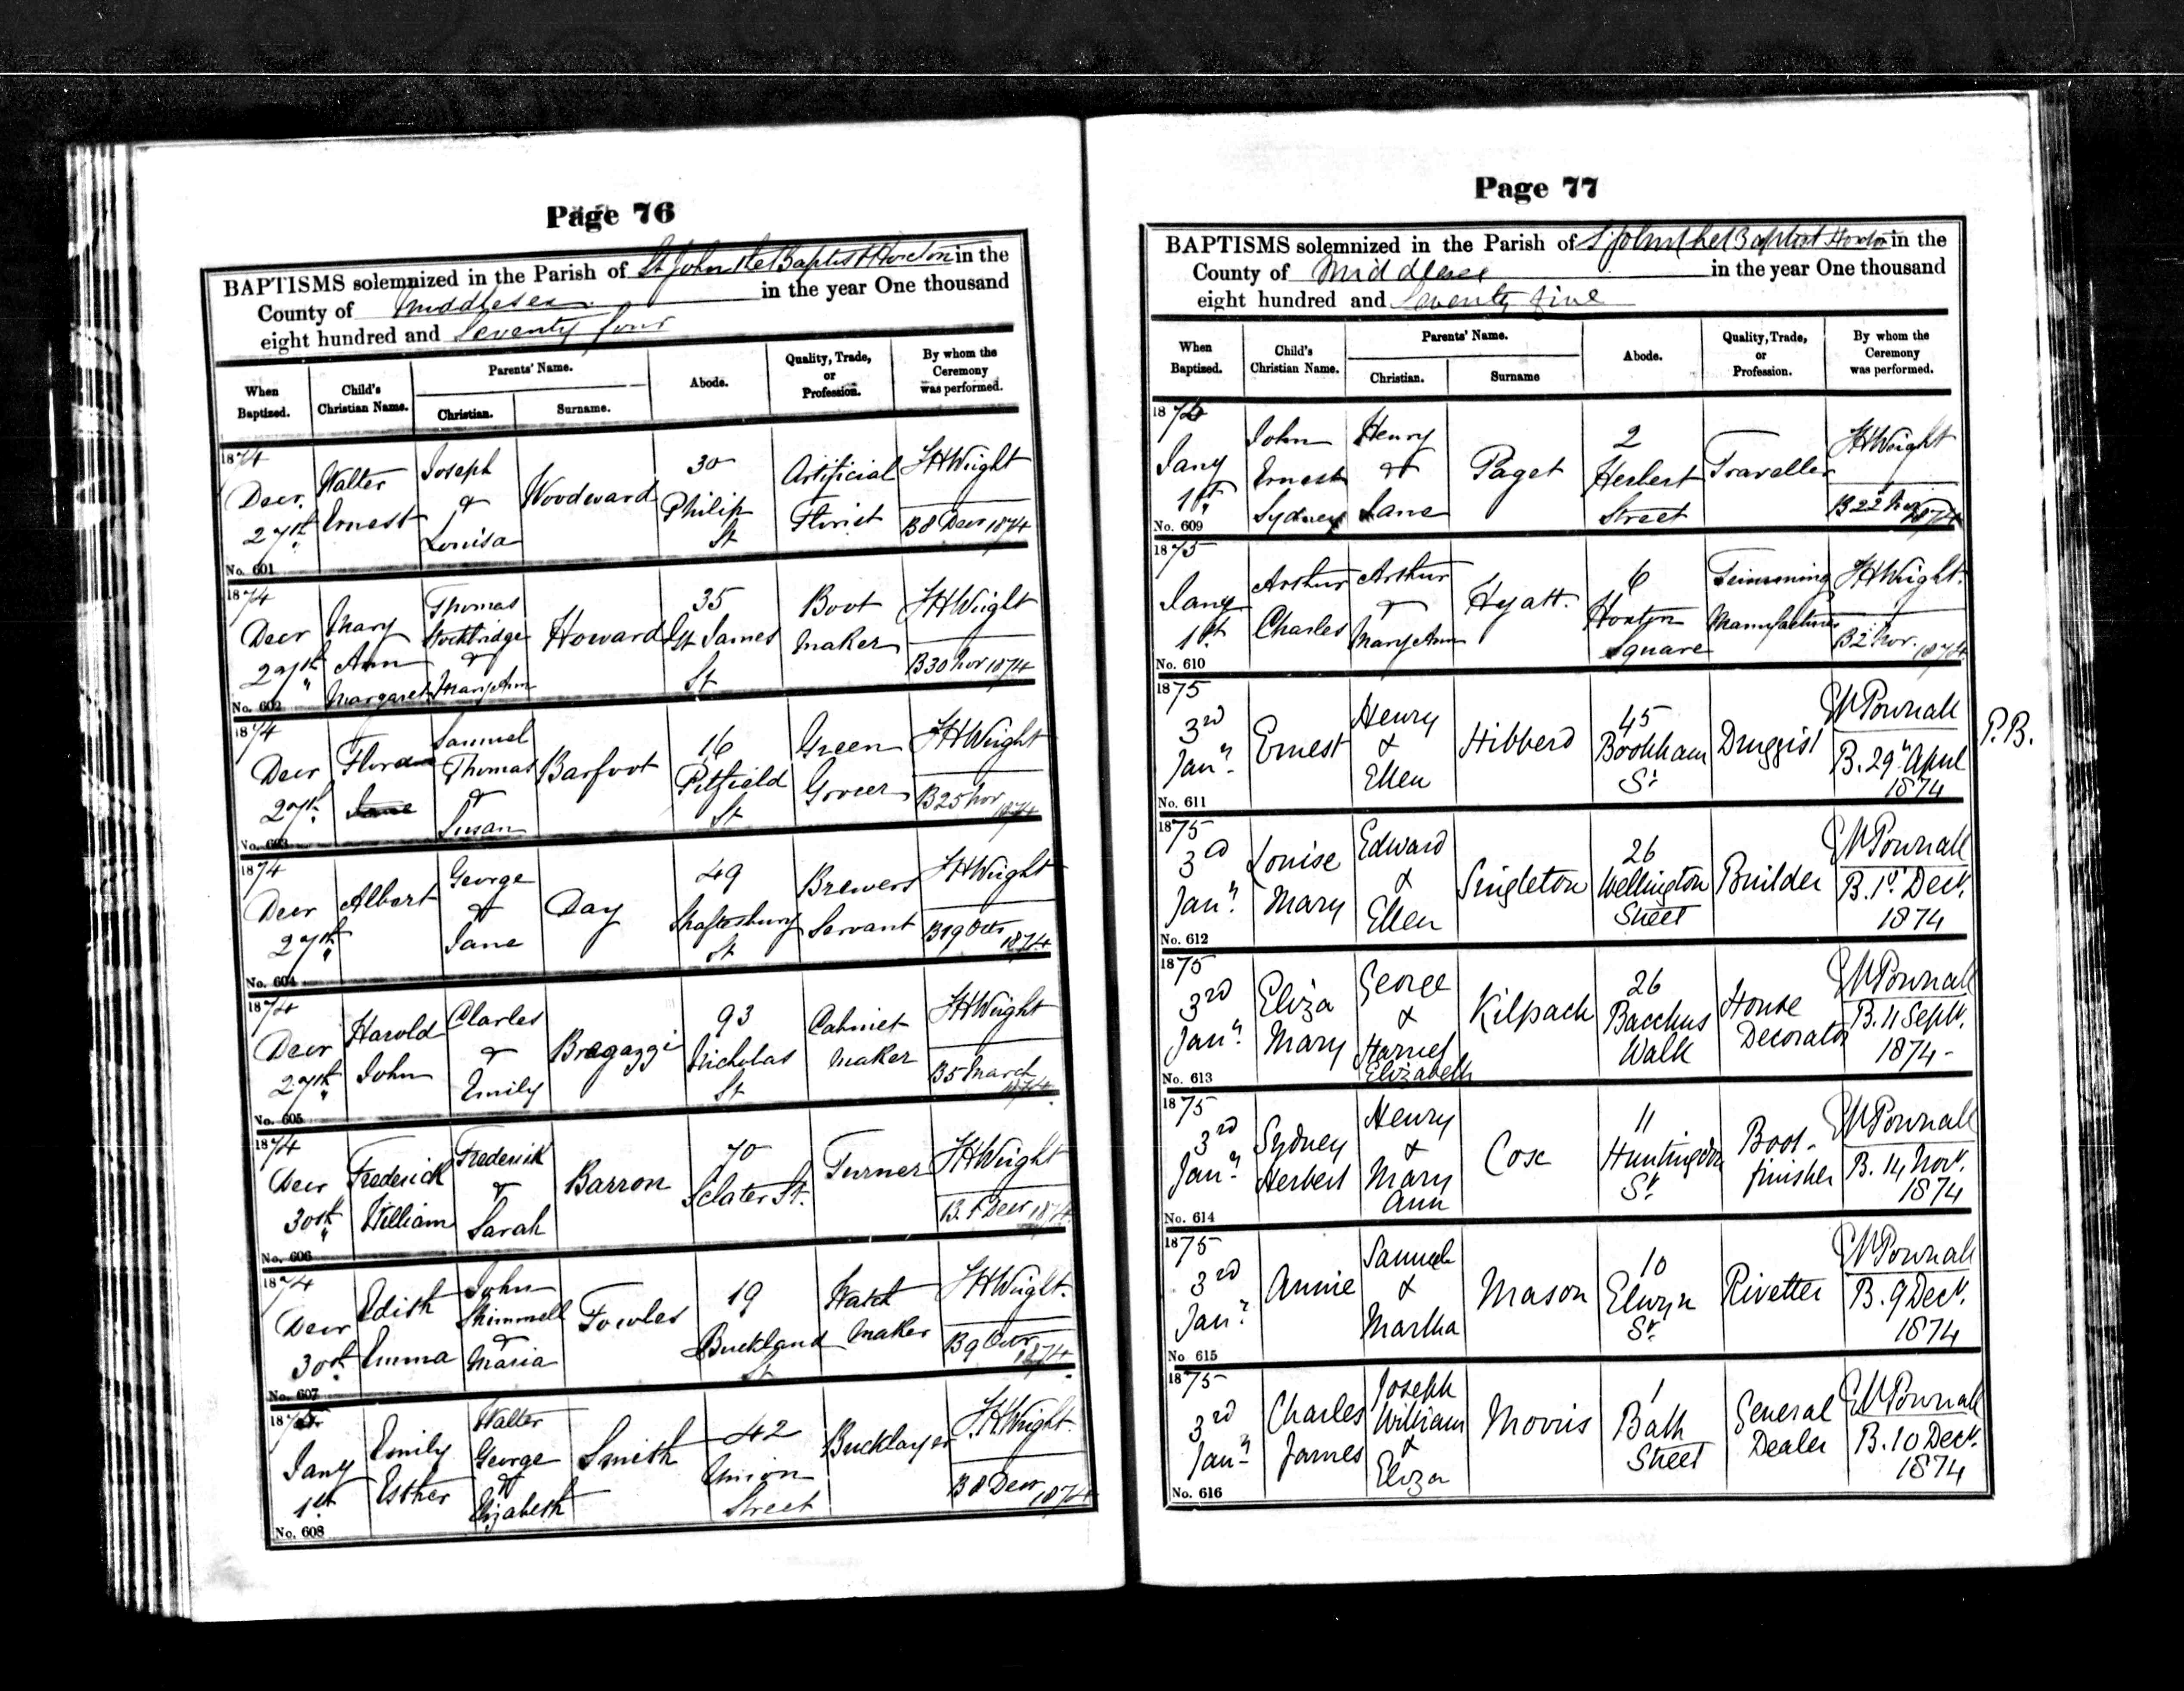 Page 76
BAPTISMS solemnized in the Parish of St John the Baptist Hoxton in the
County of Middlesex in the year One thousand
eight hundred and Seventy four
When Baptized. Child's Christian Name. Parents' Name. Christian. Surname. Abode. Quality, Trade, or Profession. By whom the Ceremony was performed.
1874
Decr 27th
Walter Ernest
Joseph & Louisa
Woodward
30 Philip St
Artificial Florist
HWright
B 8 Decr 1874
No. 601
1874
Decr 27th
Mary Ann Margaret
Thomas Stockbridge & Mary Ann
Howard
35 St James St
Boot Maker
HWright
B 30 Nov 1874
No. 602
1874
Decr 27th
Flora Jane
Samuel Thomas & Susan
Barfoot
16 Pitfield St
Green Grocer
HWright
B 25 Nov 1874
No. 603
1874
Decr 27th
Albert
George & Jane
Day
49 Shaftesbury St
Brewers Servant
HWright
B 19 Octr 1874
No. 604
1874
Decr 27th
Harold John
Charles & Emily
Bragazzi
93 Nicholas St
Cabinet Maker
HWright
B 5 March 1874
No. 605
1874
Decr 30th
Frederick William
Frederick & Sarah
Barron
70 Sclater St.
Turner
HWright
B. 1 Decr 1874
No. 606
1874
Decr 30th
Edith Emma
John Shimmell & Maria
Fowler
19 Buckland St
Watch Maker
HWright.
B 9 1874
No. 607
1875
Jany 1st
Emily Esther
Walter George & Elizabeth
Smith
42 Union Street
Bricklayer
HWright.
B 8 Decr 1874
No. 608
Page 77
BAPTISMS solemnized in the Parish of St John the Baptist Hoxton in the
County of Middlesex in the year One thousand
eight hundred and Seventy five
When Baptized. Child's Christian Name. Parents' Name. Christian. Surname Abode. Quality, Trade, or Profession. By whom the Ceremony was performed.
1875
Jany 1st
John Ernest Sydney
Henry & Jane
Paget
2 Herbert Street
Traveller
HWright
B 22 Nov 1874
No. 609
1875
Jany 1st
Arthur Charles
Arthur & Mary Ann
Hyatt.
6 Hoxton Square
Trimming Manufacturer
HWright.
B 2 Nov. 1874
No. 610
1875
3rd Jany.
Ernest
Henry & Ellen
Hibberd
45 Bookham St.
Druggist
GWPownall
B. 29th April 1874
P.B.
No. 611
1875
3rd Jany.
Louise Mary
Edward & Ellen
Singleton
26 Wellington Street
Builder
GWPownall
B. 1st Decr. 1874
No. 612
1875
3rd Jany.
Eliza Mary
George & Harriet Elizabeth
Kilpack
26 Bacchus Walk
House Decorator
GWPownall
B. 11 Septr. 1874-
No. 613
1875
3rd Jany.
Sydney Herbert
Henry & Mary Ann
Cox
11 Huntingdon St.
Boot-finisher
GWPownall
B. 14 Novr. 1874
No. 614
1875
3rd Jany.
Annie
Samuel & Martha
Mason
10 Elwyn St.
Rivetter
GWPownall
B. 9 Decr. 1874
No 615
1875
3rd Jany.
Charles James
Joseph William & Eliza
Morris
1 Bath Street
General Dealer
GWPownall
B. 10 Decr. 1874
No. 616